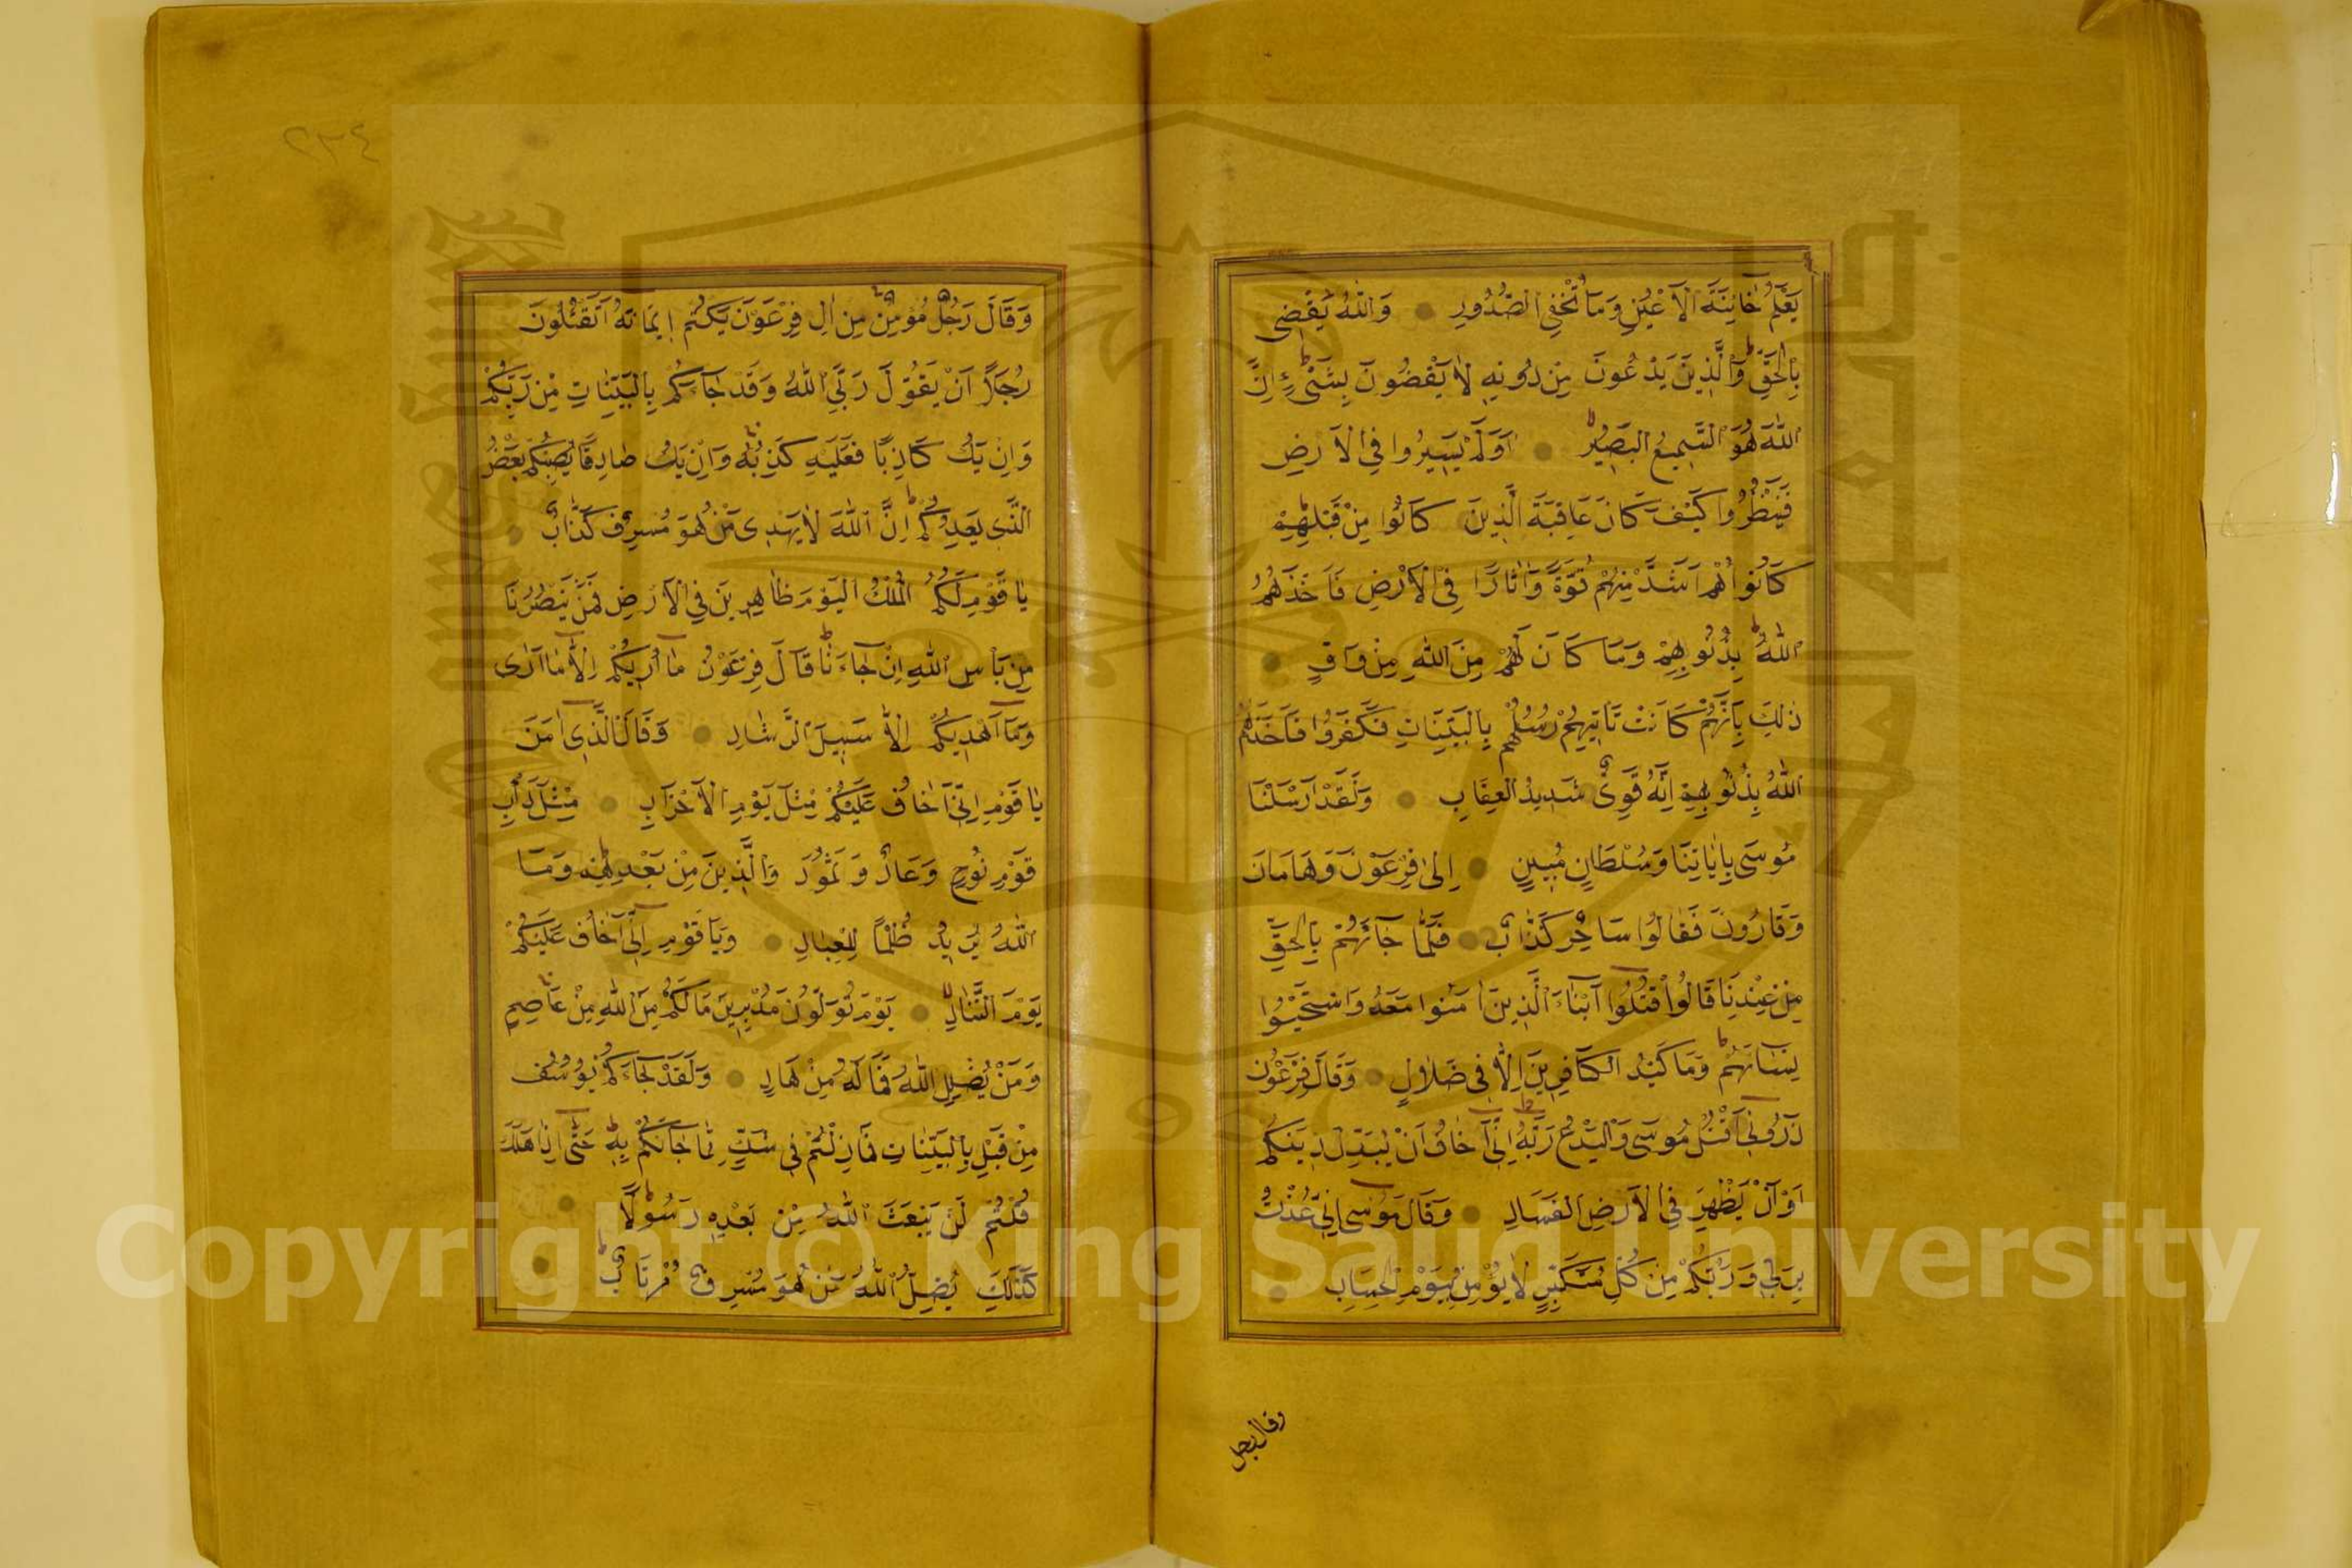 يَعْلَمُ خَائِنَةَ الْاَعْيُنِ وَمَا تُخْفِي الصُّدُورِ وَاللّٰهُ يَقْضِي
بِالْحَقِّ وَالَّذِينَ يَدْعُونَ مِنْ دُونِهِ لَا يَقْضُونَ بِشَىْءٍ اِنَّ
اللّٰهَ هُوَ السَّمِيعُ الْبَصِيرُ اَوَلَمْ يَسِيرُوا فِي الْاَرْضِ
فَيَنْظُرُوا كَيْفَ كَانَ عَاقِبَةَ الَّذِينَ كَانُوا مِنْ قَبْلِهِمْ
كَانُوا هُمْ اَشَدَّ مِنْهُمْ قُوَّةً وَاٰثَارًا فِي الْاَرْضِ فَاَخَذَهُمُ
اللّٰهُ بِذُنُوبِهِمْ وَمَا كَانَ لَهُمْ مِنَ اللّٰهِ مِنْ وَاقٍ
ذٰلِكَ بِاَنَّهُمْ كَانَتْ تَاْتِيهِمْ رُسُلُهُمْ بِالْبَيِّنَاتِ فَكَفَرُوا فَاَخَذَهُمُ
اللّٰهُ بِذُنُوبِهِمْ اِنَّهُ قَوِىٌّ شَدِيدُ الْعِقَابِ وَلَقَدْ اَرْسَلْنَا
مُوسَى بِاٰيَاتِنَا وَسُلْطَانٍ مُبِينٍ اِلٰى فِرْعَوْنَ وَهَامَانَ
وَقَارُونَ فَقَالُوا سَاحِرٌ كَذَّابٌ فَلَمَّا جَائَهُمْ بِالْحَقِّ
مِنْ عِنْدِنَا قَالُوا اقْتُلُوا اَبْنَاءَ الَّذِينَ اٰمَنُوا مَعَهُ وَاسْتَحْيُوا
نِسَاءَهُمْ وَمَا كَيْدُ الْكَافِرِينَ اِلَّا فِى ضَلَالٍ وَقَالَ فِرْعَوْنُ
ذَرُونِى اَقْتُلْ مُوسَى وَلْيَدْعُ رَبَّهُ اِنِّى اَخَافُ اَنْ يُبَدِّلَ دِينَكُمْ
اَوْ اَنْ يُظْهِرَ فِي الْاَرْضِ الْفَسَادِ وَقَالَ مُوسَى اِنِّى عُذْتُ
بِرَبِّي وَرَبِّكُمْ مِنْ كُلِّ مُتَكَبِّرٍ لَا يُؤْمِنُ بِيَوْمِ الْحِسَابِ
وقال رجل
٢٣٤
وَقَالَ رَجُلٌ مُؤْمِنٌ مِنْ اٰلِ فِرْعَوْنَ يَكْتُمُ اِيمَانَهُ اَتَقْتُلُونَ
رَجُلًا اَنْ يَقُولَ رَبِّيَ اللّٰهُ وَقَدْ جَاءَكُمْ بِالْبَيِّنَاتِ مِنْ رَبِّكُمْ
وَاِنْ يَكُ كَاذِبًا فَعَلَيْهِ كَذِبُهُ وَاِنْ يَكُ صَادِقًا يُصِبْكُمْ بَعْضُ
الَّذِى يَعِدُكُمْ اِنَّ اللّٰهَ لَا يَهْدِى مَنْ هُوَ مُسْرِفٌ كَذَّابٌ
يَا قَوْمِ لَكُمُ الْمُلْكُ الْيَوْمَ ظَاهِرِينَ فِي الْاَرْضِ فَمَنْ يَنْصُرُنَا
مِنْ بَاْسِ اللّٰهِ اِنْ جَاءَنَا قَالَ فِرْعَوْنُ مَا اُرِيكُمْ اِلَّا مَا اَرٰى
وَمَا اَهْدِيكُمْ اِلَّا سَبِيلَ الرَّشَادِ وَقَالَ الَّذِى اٰمَنَ
يَا قَوْمِ اِنِّى اَخَافُ عَلَيْكُمْ مِثْلَ يَوْمِ الْاَحْزَابِ مِثْلَ دَاْبِ
قَوْمِ نُوحٍ وَعَادٍ وَثَمُودَ وَالَّذِينَ مِنْ بَعْدِهِمْ وَمَا
اللّٰهُ يُرِيدُ ظُلْمًا لِلْعِبَادِ وَيَا قَوْمِ اِنِّى اَخَافُ عَلَيْكُمْ
يَوْمَ التَّنَادِ يَوْمَ تُوَلُّونَ مُدْبِرِينَ مَا لَكُمْ مِنَ اللّٰهِ مِنْ عَاصِمٍ
وَمَنْ يُضْلِلِ اللّٰهُ فَمَا لَهُ مِنْ هَادٍ وَلَقَدْ جَاءَكُمْ يُوسُفُ
مِنْ قَبْلُ بِالْبَيِّنَاتِ فَمَا زِلْتُمْ فِى شَكٍّ مِمَّا جَاءَكُمْ بِهِ حَتَّى اِذَا هَلَكَ
قُلْتُمْ لَنْ يَبْعَثَ اللّٰهُ مِنْ بَعْدِهِ رَسُولًا
كَذٰلِكَ يُضِلُّ اللّٰهُ مَنْ هُوَ مُسْرِفٌ مُرْتَابٌ
Copyright © King Saud University